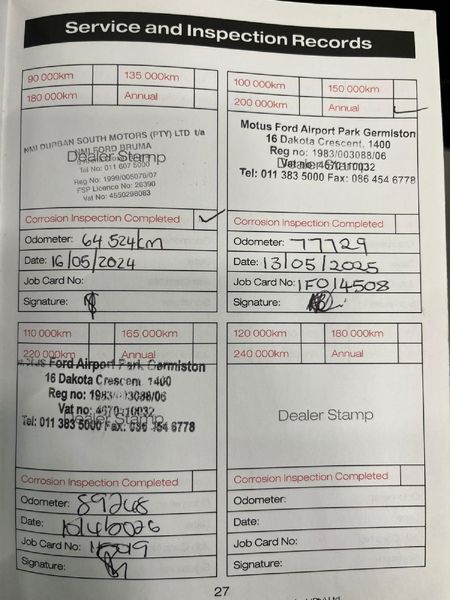 Service and Inspection Records
90 000km 135 000km
180 000km Annual
NMI DURBAN SOUTH MOTORS (PTY) LTD t/a
NMI FORD BRUMA
Dealer Stamp
Tel No: 011 607 5000
Reg No: 1999/005079/07
FSP Licence No: 26390
Vat No: 4550298083
Corrosion Inspection Completed ✓
Odometer: 64 524km
Date: 16/05/2024
Job Card No:
Signature:
100 000km 150 000km
200 000km Annual ✓
Motus Ford Airport Park Germiston
16 Dakota Crescent, 1400
Reg no: 1983/003088/06
Dealer Stamp
Vat no: 4670110032
Tel: 011 383 5000 Fax: 086 454 6778
Corrosion Inspection Completed
Odometer: 77729
Date: 13/05/2025
Job Card No: 1F014508
Signature:
110 000km 165 000km
220 000km Annual
Motus Ford Airport Park Germiston
16 Dakota Crescent 1400
Reg no: 1983/003088/06
Vat no: 4670110032
Dealer Stamp
Tel: 011 383 5000 Fax: 086 454 6778
Corrosion Inspection Completed
Odometer: 89268
Date:
Job Card No:
Signature:
120 000km 180 000km
240 000km Annual
Dealer Stamp
Corrosion Inspection Completed
Odometer:
Date:
Job Card No:
Signature:
27